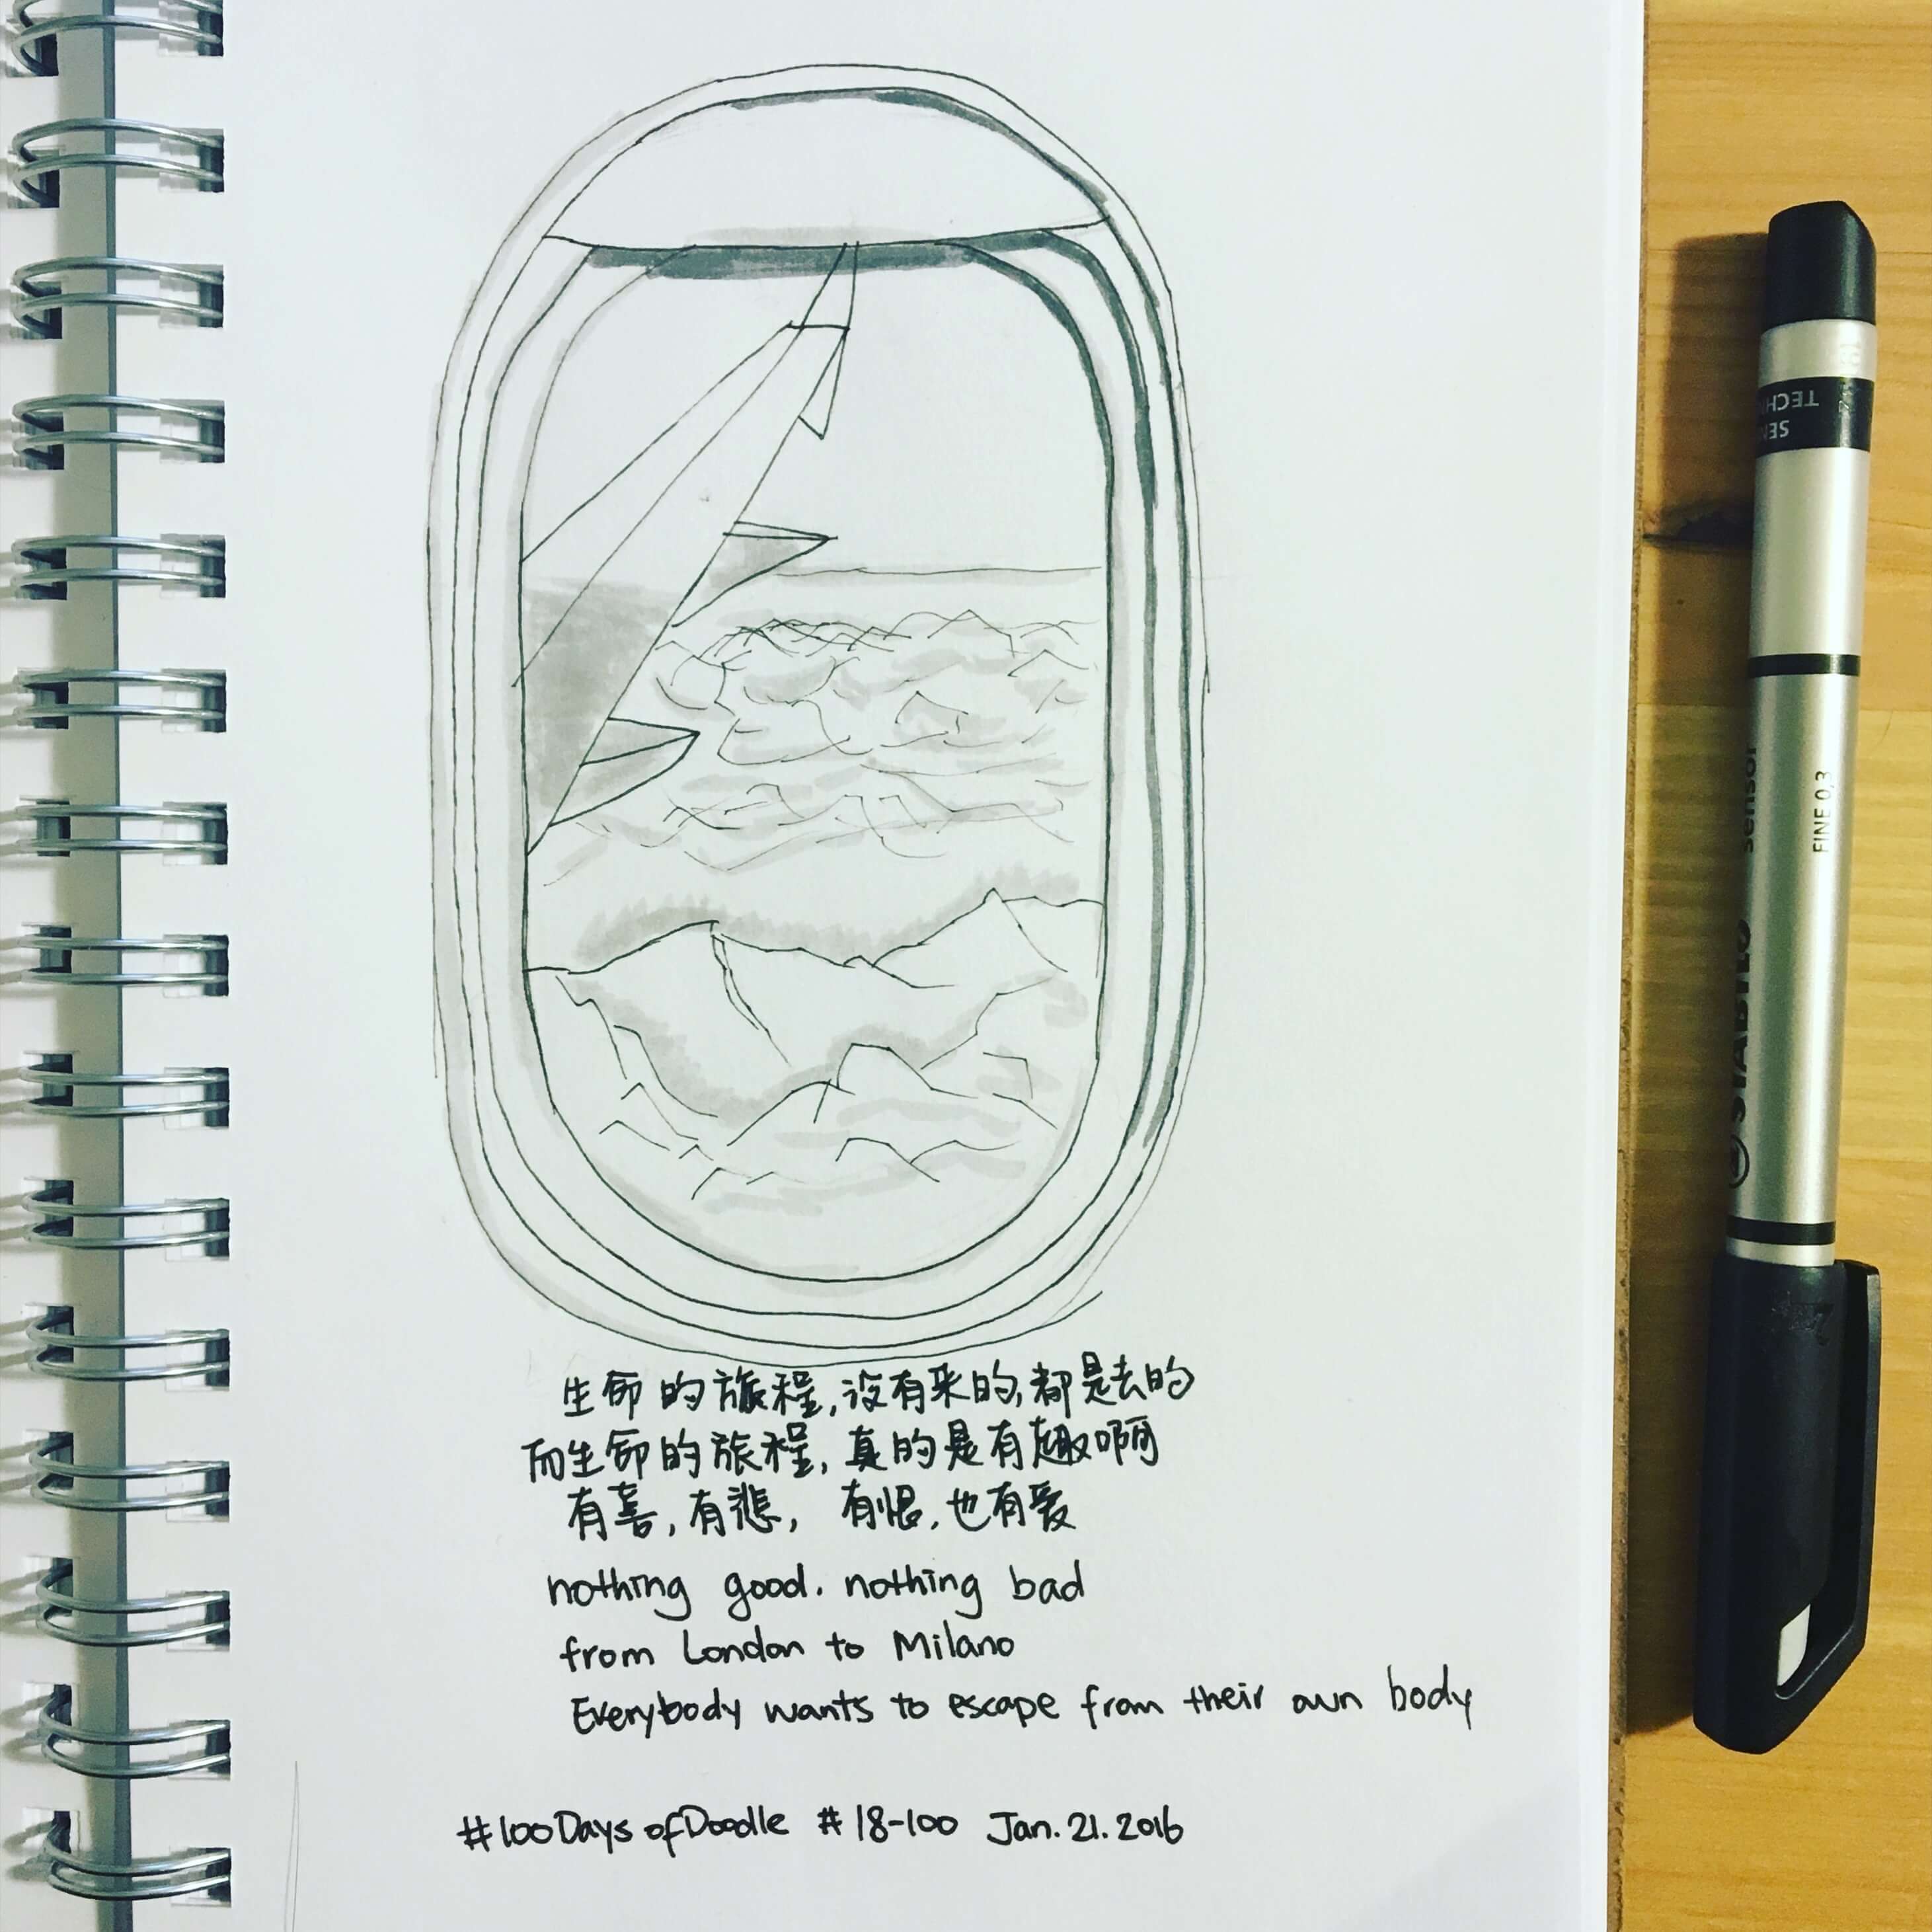 生命的旅程,没有来的,都是去的
而生命的旅程,真的是有趣啊
有喜,有悲, 有恨.也有爱
nothing good. nothing bad
from London to Milano
Everybody wants to escape from their own body
#100DaysofDoodle #18-100 Jan.21.2016
STABILO sensor
FINE 0,3